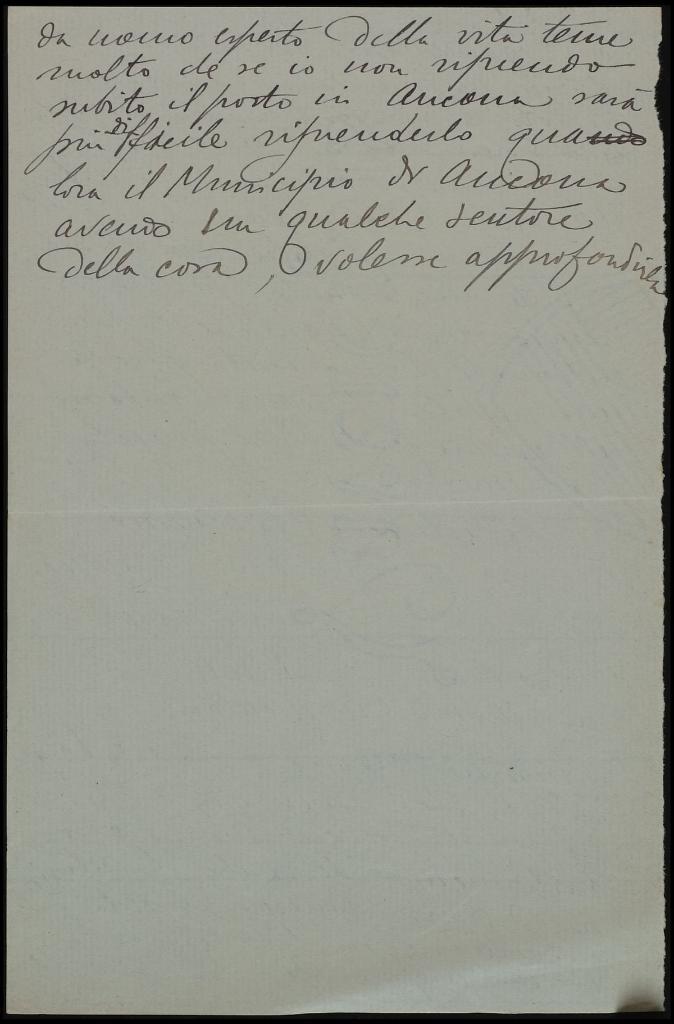 da uomo esperto della vita teme
molto che se io non riprendo
subito il posto in Ancona sarà
più difficile riprenderlo qua
lora il Municipio di Ancona
avendo un qualche sentore
della cosa, volesse approfondirla